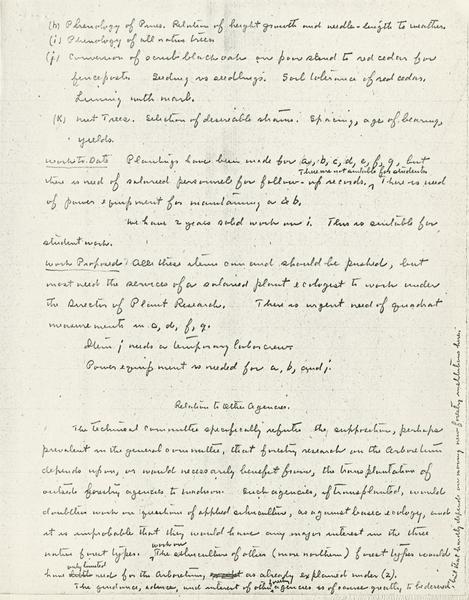 (h) Phenology of Pines. Relation of height growth and needle-length to weather.
(i) Phenology of all native trees
(j) Conversion of scrub black oak on poor sand to red cedar for
fenceposts. Seeding vs seedlings. Soil tolerance of red cedar.
Liming with marl.
(k) Nut Trees. Selection of desirable strains. Spacing, age of bearing,
yields.
Work to Date Plantings have been made for a, b, c, d, e, f, g, but
These are not suitable for students
there is need of salaried personnel for follow-up records. There is need
of power equipment for maintaining a & b.
We have 2 years solid work on i. This is suitable for
student work.
Work Proposed: All these items can and should be pushed, but
most need the services of a salaried plant ecologist to work under
the Director of Plant Research. There is urgent need of quadrat
measurements in a, d, f, g.
Item j needs a temporary labor crew
Power equipment is needed for a, b, and j.
Relation to Other Agencies.
The technical committee specifically refutes the supposition, perhaps
prevalent in the general committee, that forestry research on the Arboretum
depends upon, or would necessarily benefit from, the transplantation of
outside forestry agencies to Madison. Such agencies, if transplanted, would
doubtless work on questions of applied silviculture, as against basic ecology, and
it is improbable that they would have any major interest in the three
native forest types. The silviculture of other (more northern) forest types would
work on
only limited
have need for the Arboretum, as already explained under (2).
The guidance, advice, and interest of other forestry agencies is of course greatly to be desired